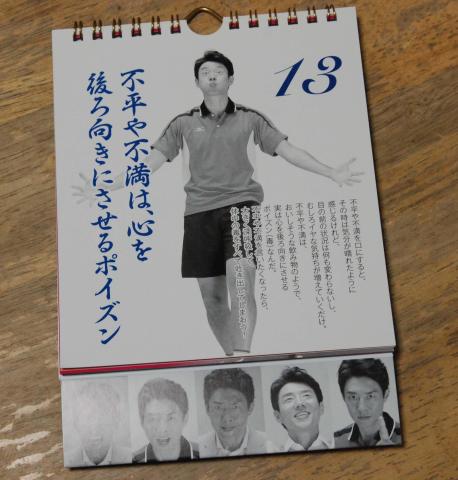 13
不平や不満は、心を
後ろ向きにさせるポイズン
不平や不満を口にすると、
その時は気分が晴れたように
感じるけれど、
目の前の状況は何も変わらないし、
むしろイヤな気持ちが増えていくだけ。
不平や不満は、
おいしそうな飲み物のようで、
実は心を後ろ向きにさせる
ポイズン(毒)なんだ。
不平や不満を言いたくなったら、
吐き出してしまおう!